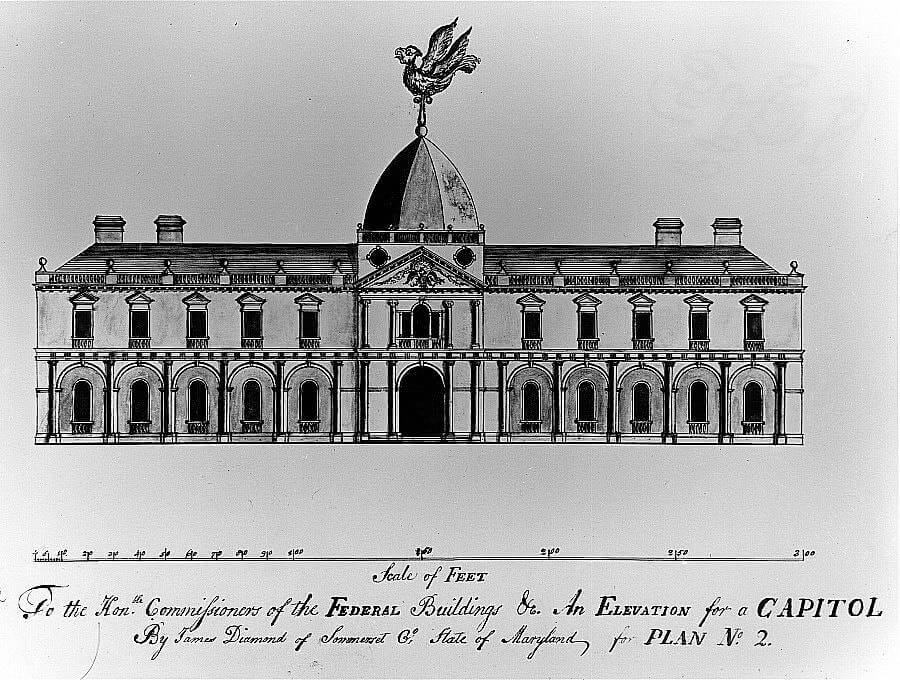 10 20 30 40 50 60 70 80 90 100 150 200 250 300
Scale of FEET
To the Hon.ble Commissioners of the FEDERAL Buildings &c. An ELEVATION for a CAPITOL
By James Diamond of Sommerset Co. State of Maryland, for PLAN No. 2.